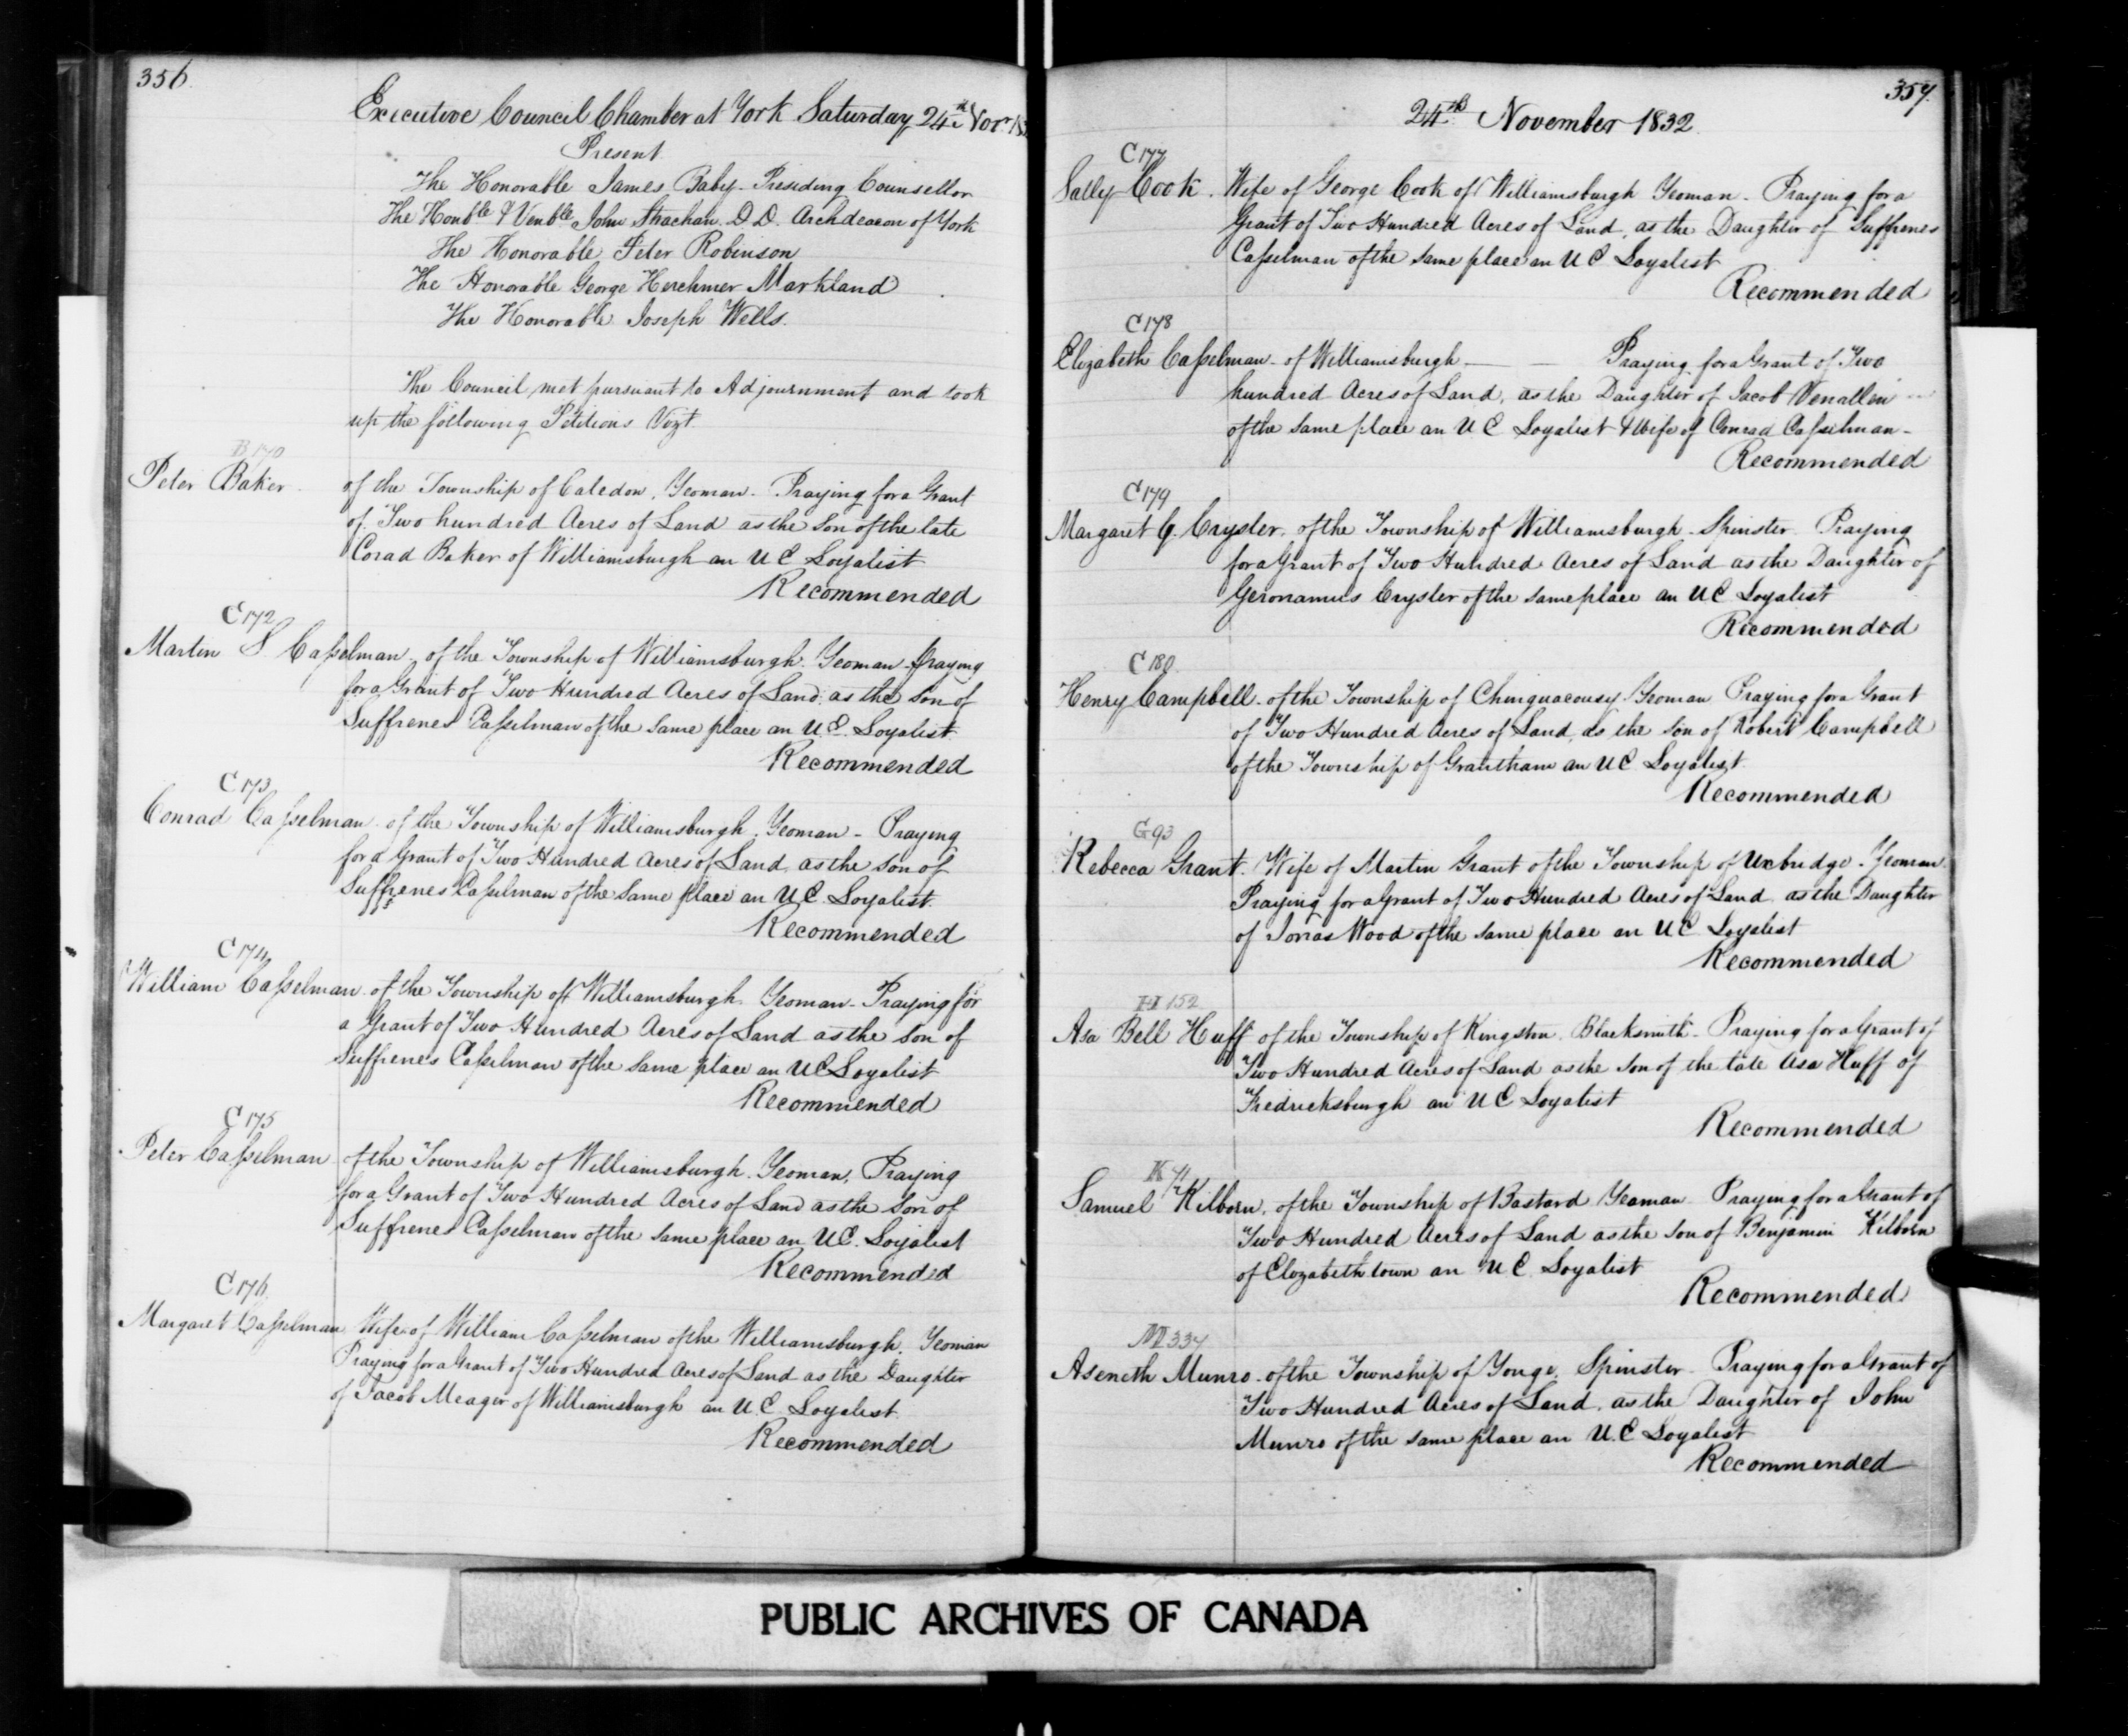 356.
Executive Council Chamber at York Saturday 24th Novr
Present
The Honorable James Baby Presiding Counsellor
The Honble & Venble John Strachan D.D. Archdeacon of York
The Honorable Peter Robinson
The Honorable George Herchmer Markland
The Honorable Joseph Wells.
The Council met pursuant to Adjournment and took
up the following Petitions Vizt.
B 170
Peter Baker of the Township of Caledon, Yeoman - Praying for a Grant
of Two hundred Acres of Land as the Son of the late
Corad Baker of Williamsburgh an U E Loyalist
Recommended
C 172
Martin S Casselman of the Township of Williamsburgh. Yeoman Praying
for a Grant of Two Hundred Acres of Land as the Son of
Suffrenes Casselman of the same place an U.E. Loyalist
Recommended
C 173
Conrad Casselman of the Township of Williamsburgh. Yeoman - Praying
for a Grant of Two Hundred Acres of Land as the Son of
Suffrenes Casselman of the same place an U.E. Loyalist.
Recommended
C 174
William Casselman of the Township of Williamsburgh Yeoman - Praying for
a Grant of Two Hundred Acres of Land as the Son of
Suffrenes Casselman of the same place an U E Loyalist
Recommended
C 175
Peter Casselman of the Township of Williamsburgh. Yeoman, Praying
for a Grant of Two Hundred Acres of Land as the Son of
Suffrenes Casselman of the same place an U E. Loyalist
Recommended
C 176.
Margaret Casselman Wife of William Casselman of the Williamsburgh. Yeoman
Praying for a Grant of Two Hundred Acres of Land as the Daughter
of Jacob Meager of Williamsburgh an U.E. Loyalist.
Recommended
357.
24th November 1832.
C 177
Sally Cook. Wife of George Cook of Williamsburgh Yeoman - Praying for a
Grant of Two Hundred Acres of Land, as the Daughter of Suffrenes
Casselman of the same place an U E Loyalist
Recommended
C 178
Elizabeth Casselman - of Williamsburgh - - Praying for a Grant of Two
hundred Acres of Land, as the Daughter of Jacob Venallen
of the same place an U E Loyalist & Wife of Conrad Casselman -
Recommended
C 179
Margaret G. Crysler, of the Township of Williamsburgh - Spinster - Praying
for a Grant of Two Hundred Acres of Land as the Daughter of
Geronamus Crysler of the same place an U E Loyalist
Recommended
C 180.
Henry Campbell - of the Township of Chinguacousy. Yeoman Praying for a Grant
of Two Hundred Acres of Land, as the Son of Robert Campbell
of the Township of Grantham an U E Loyalist.
Recommended
G 93
Rebecca Grant. Wife of Martin Grant of the Township of Uxbridge - Yeoman.
Praying for a Grant of Two Hundred Acres of Land as the Daughter
of Jonas Wood of the same place an U E Loyalist
Recommended
H 152
Asa Bell Huff of the Township of Kingston. Blacksmith - Praying for a Grant of
Two Hundred Acres of Land as the Son of the late Asa Huff of
Fredricksburgh an U E Loyalist
Recommended
K 41
Samuel Kilborn, of the Township of Bastard Yeoman - Praying for a Grant of
Two Hundred Acres of Land as the Son of Benjamin Kilborn
of Elizabethtown an U E Loyalist
Recommended
M 334
Aseneth Munro - of the Township of Yonge, Spinster - Praying for a Grant of
Two Hundred Acres of Land, as the Daughter of John
Munro of the same place an U.E Loyalist
Recommended
PUBLIC ARCHIVES OF CANADA